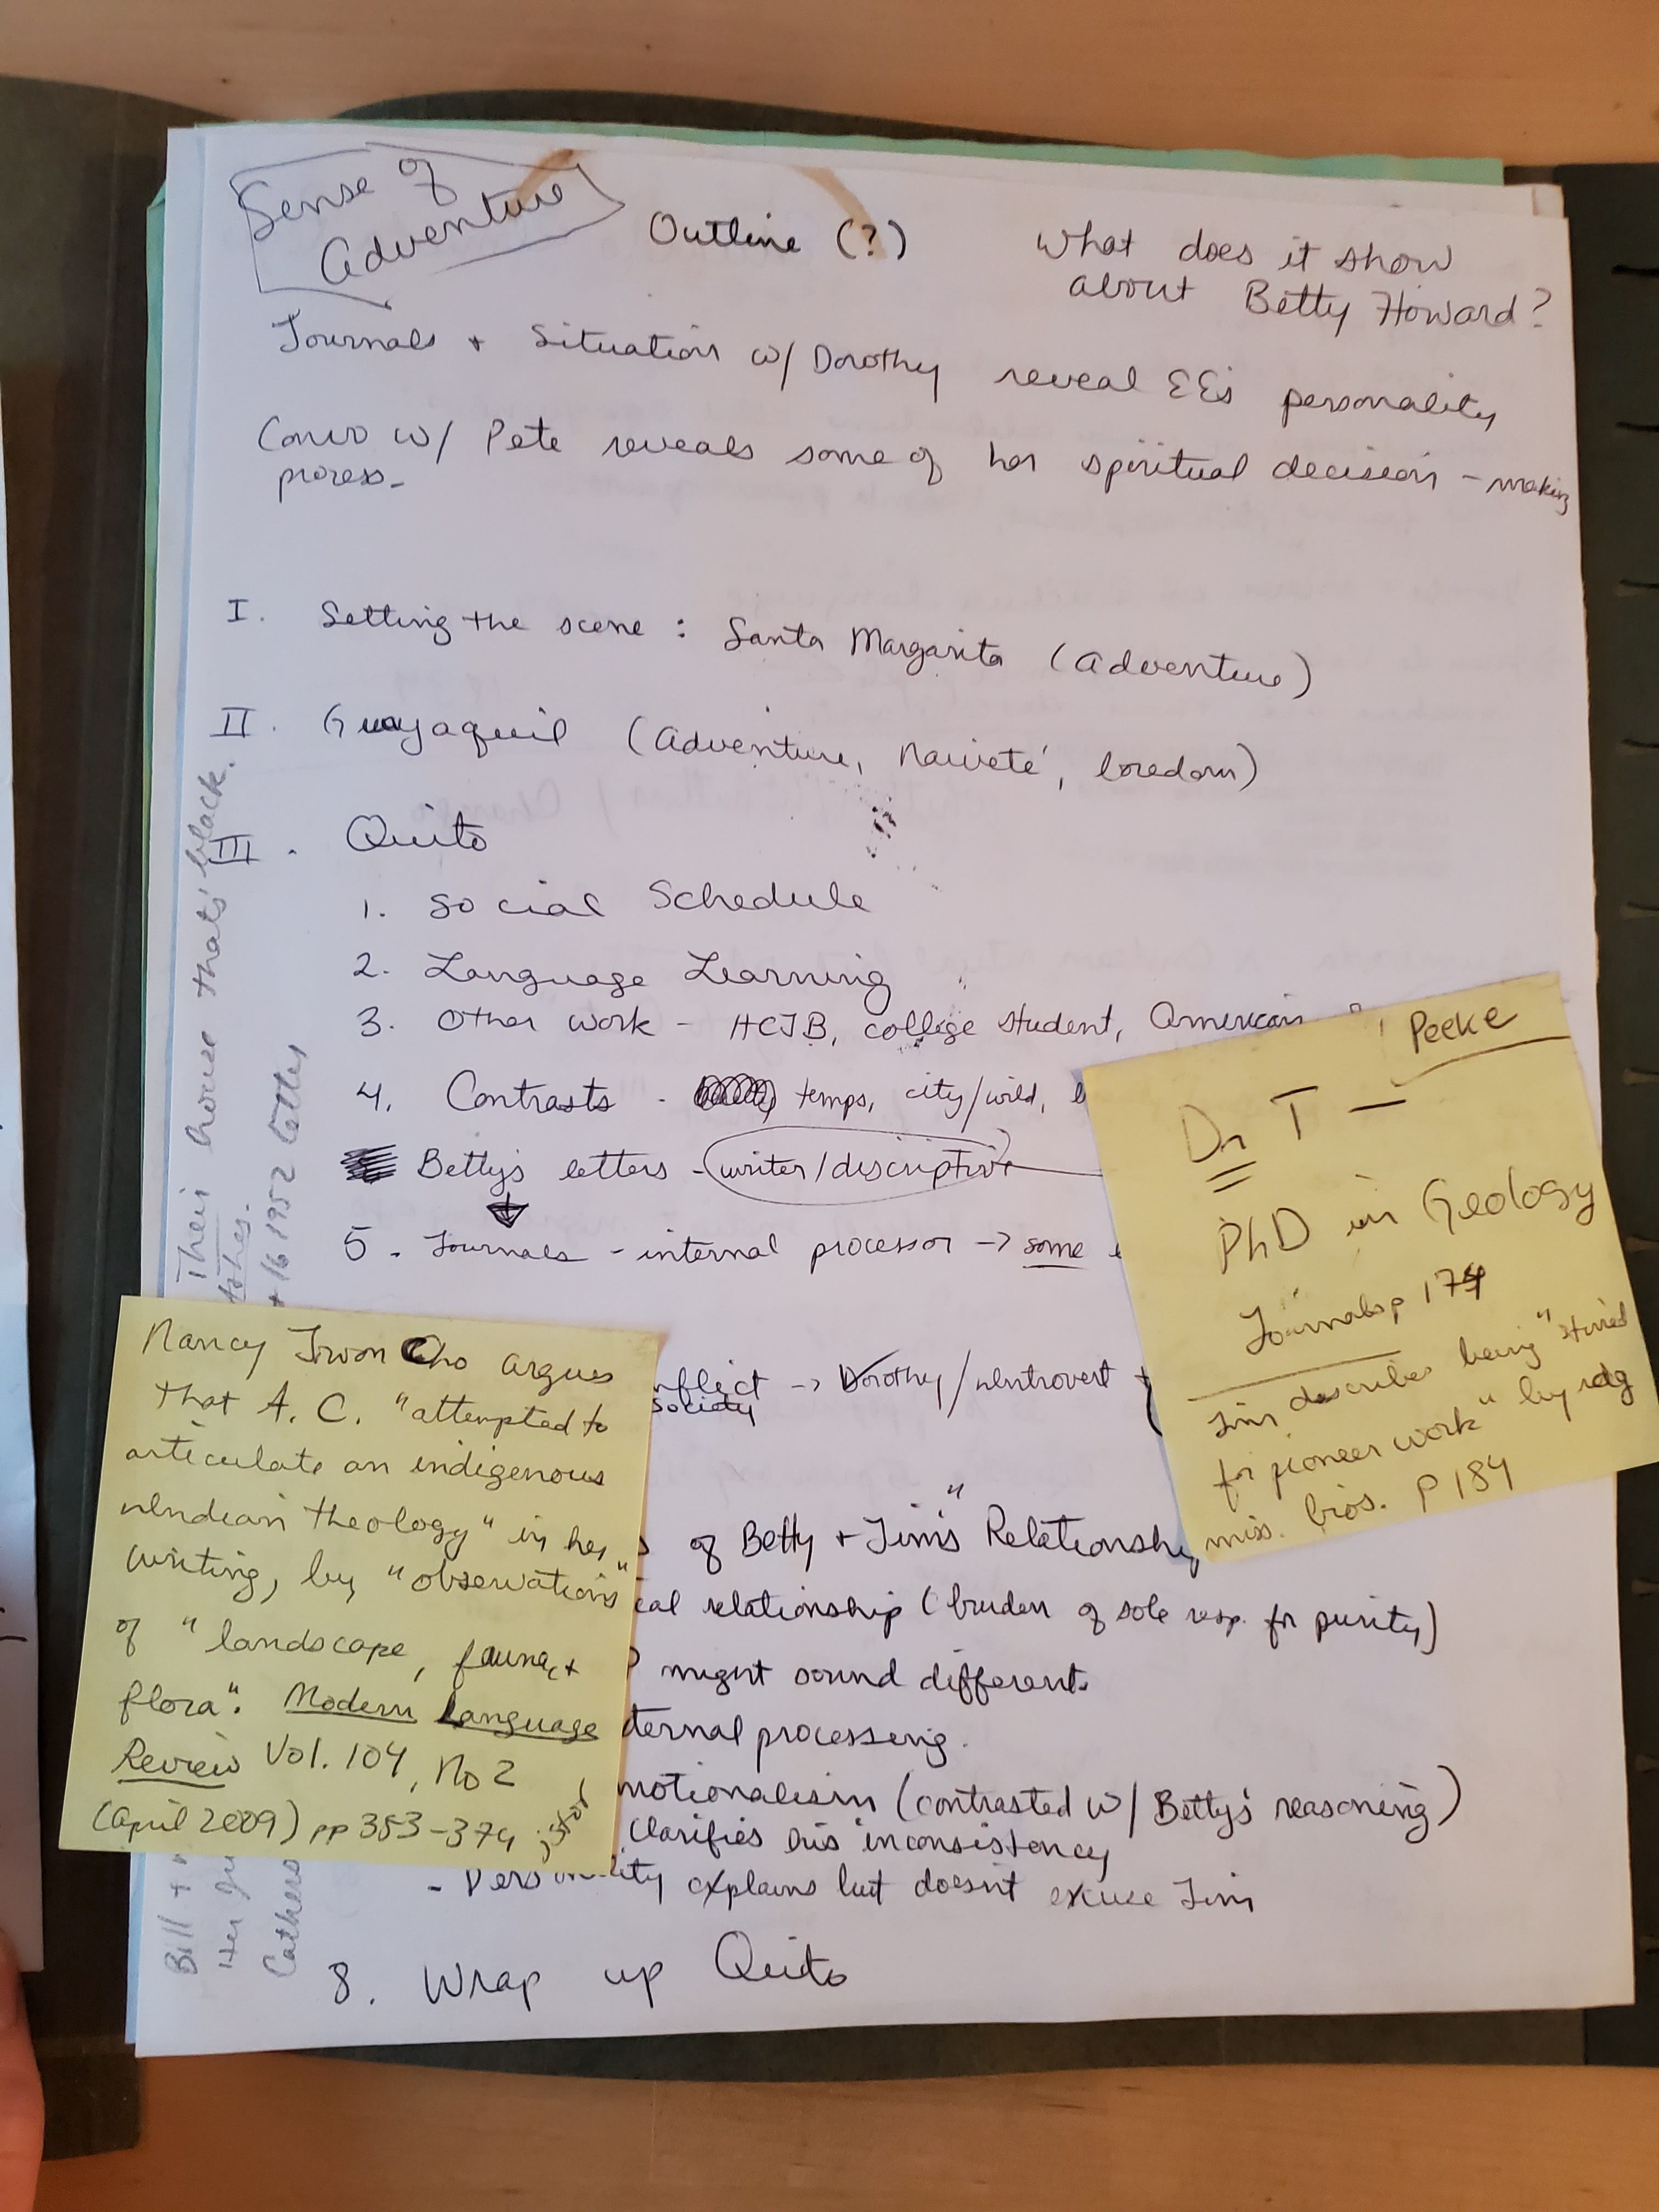 Sense of
Adventure
Outline (?)
What does it show
about Betty Howard?
Journals + Situation w/ Dorothy reveal EE's personality
Convo w/ Pete reveals some of her spiritual decision-making
process.
I. Setting the scene: Santa Margarita (Adventure)
II. Guayaquil (Adventure, Naiveté, boredom)
III. Quito
1. Social Schedule
2. Language Learning
3. Other work - HCJB, college student, American
4. Contrasts - temps, city/wild,
Betty's letters - writer/descriptive
5. Journals - internal processor → some
nflict → Dorothy/introvert +
society
of Betty + Jim's" Relationship
cal relationship (burden of sole resp. for purity)
might sound different.
ternal processing.
motionalism (contrasted w/ Betty's reasoning)
Clarifies his inconsistency
- Personality explains but doesn't excuse Jim
8. Wrap up Quito
Peeke
Dr T —
PhD in Geology
Journals p 174
Jim describes being "stirred
for pioneer work" by rdg
miss. bios. p 184
Nancy Jiwon Cho argues
that A. C. "attempted to
articulate an indigenous
Indian theology" in her
writing, by "observations"
of "landscape, fauna, +
flora". Modern Language
Review Vol. 104, No 2
(April 2009) pp 353-374 jstor
Their house that's black.
+ 16 1952 letter
Bill +
Her
Cathers